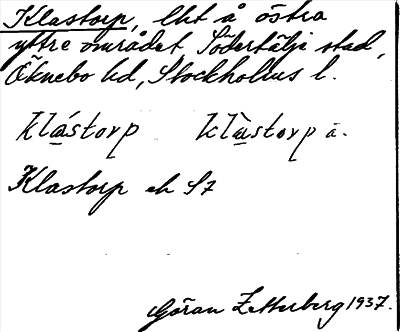 Klastorp, lht å östra
yttre området, Södertälje stad,
Öknebo hd, Stockholms l.
klástorp klùstorp ä.
Klastorp ek S7
Göran Zetterberg 1937.